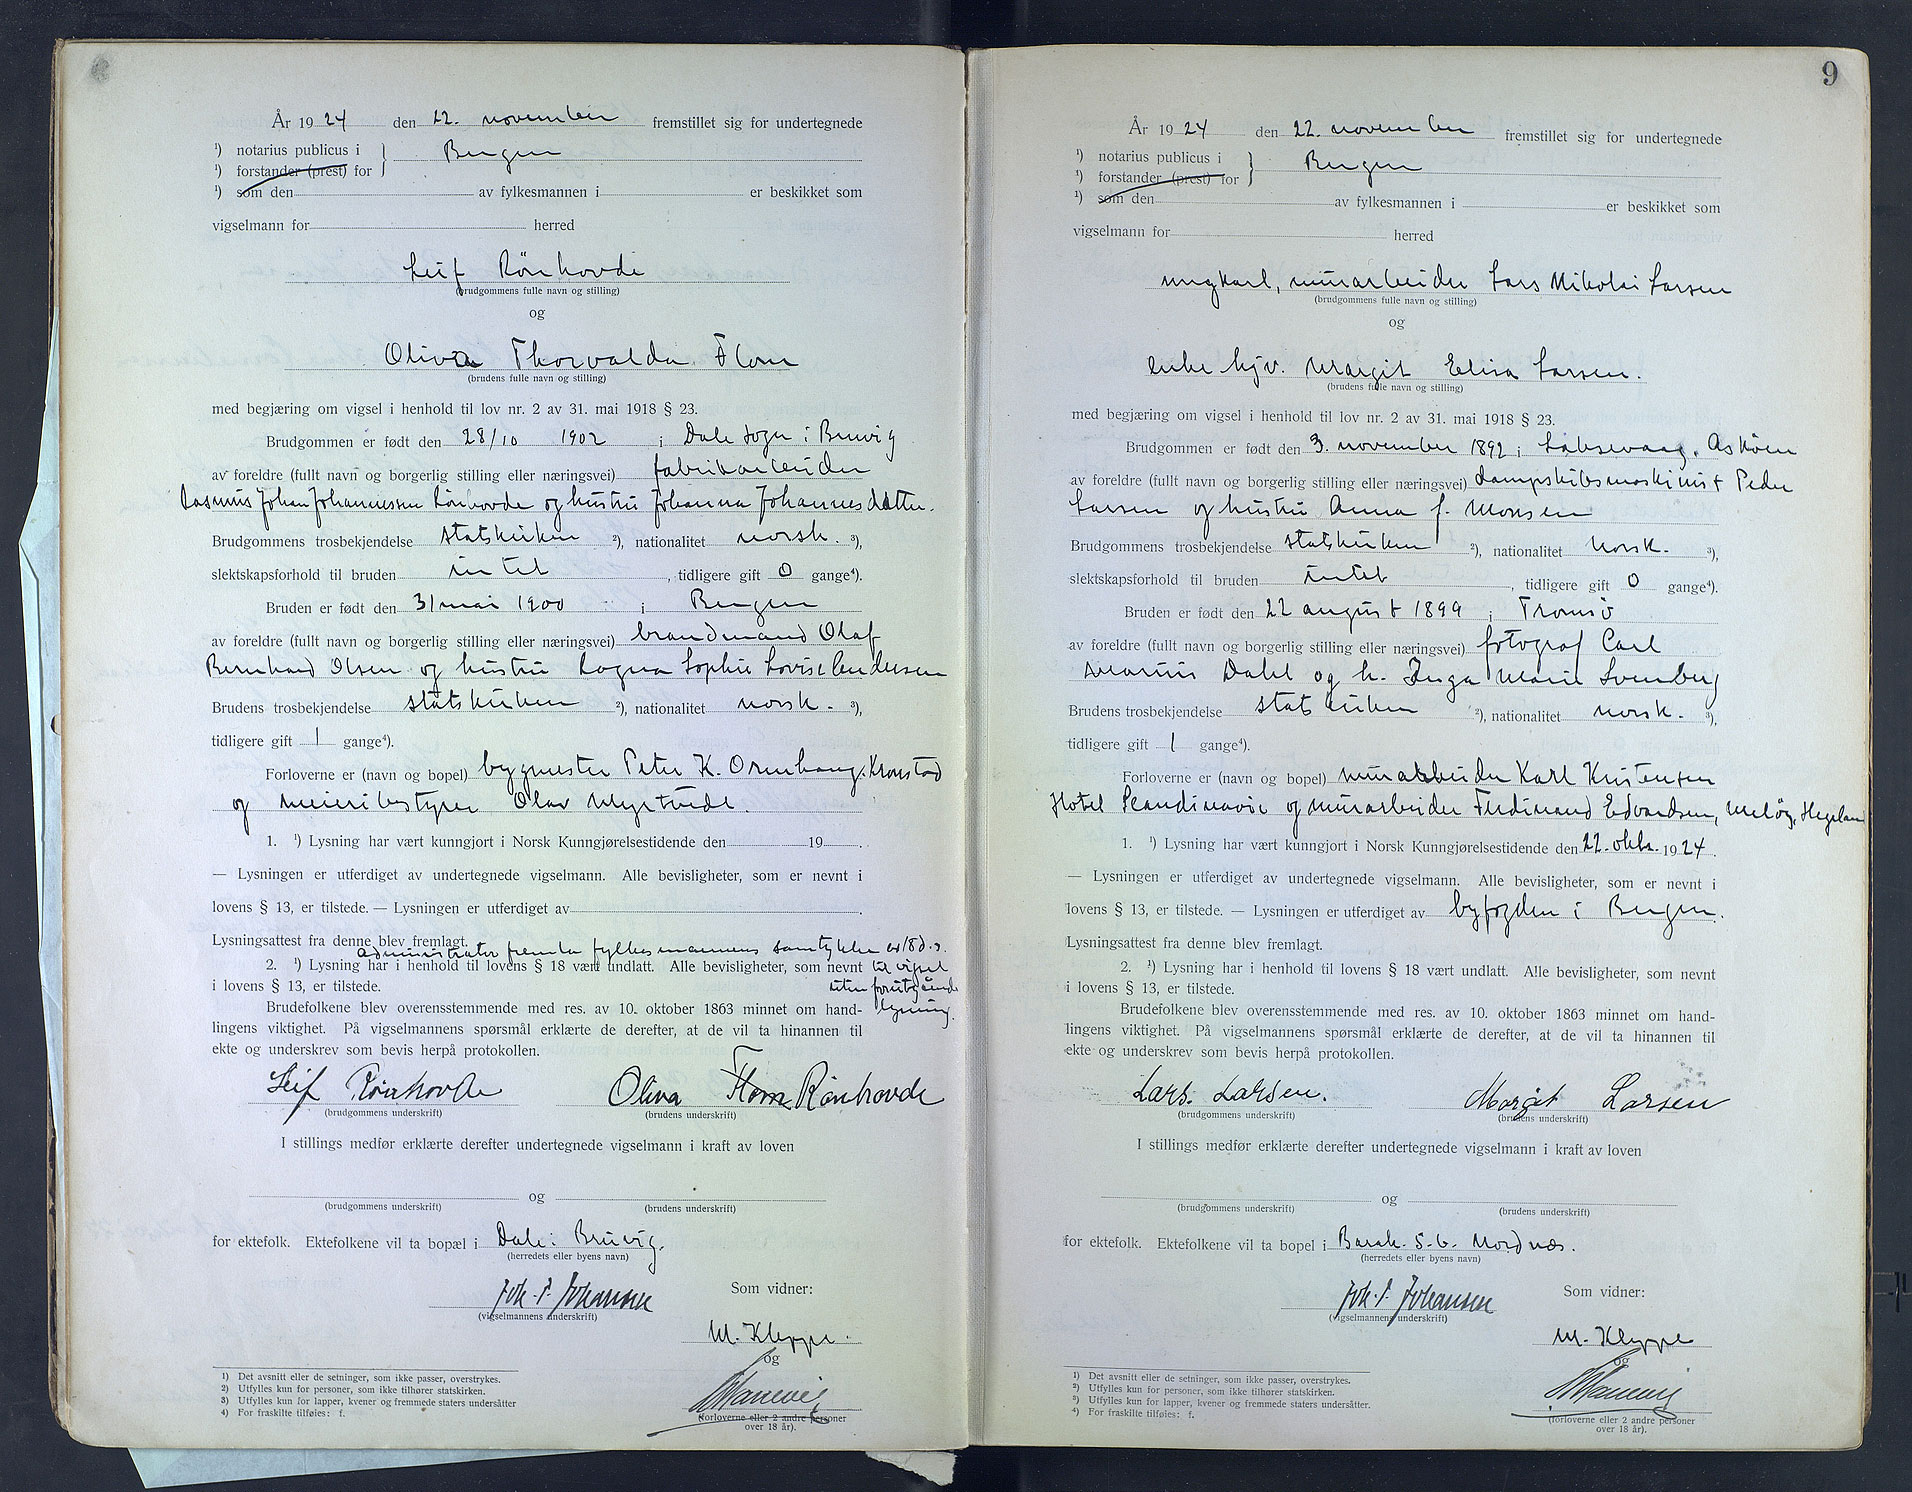 År 1924 den 22. november fremstillet sig for undertegnede
¹) notarius publicus i } Bergen
¹) forstander (prest) for
¹) som den av fylkesmannen i er beskikket som
vigselmann for herred
Leif Rönhovde
(brudgommens fulle navn og stilling)
og
Oliva Thorvalda Flom
(brudens fulle navn og stilling)
med begjæring om vigsel i henhold til lov nr. 2 av 31. mai 1918 § 23.
Brudgommen er født den 28/10 1902 i Dale sogn i Bruvig
av foreldre (fullt navn og borgerlig stilling eller næringsvei) fabrikarbeider
Rasmus Johan Johannessen Rönhovde og hustru Johanna Johannesdatter.
Brudgommens trosbekjendelse statskirken ²), nationalitet norsk. ³),
slektskapsforhold til bruden intet, tidligere gift 0 gange⁴).
Bruden er født den 31 mai 1900 i Bergen
av foreldre (fullt navn og borgerlig stilling eller næringsvei) brandmand Olaf
Bernhard Olsen og hustru Ragna Sophie Lovise Andersen
Brudens trosbekjendelse statskirken ²), nationalitet norsk. ³),
tidligere gift 1 gange⁴).
Forloverne er (navn og bopel) bygmester Peter K. Kronstad
og meieribestyrer Olav
1. ¹) Lysning har vært kunngjort i Norsk Kunngjørelsestidende den 19 .
— Lysningen er utferdiget av undertegnede vigselmann. Alle bevisligheter, som er nevnt i
lovens § 13, er tilstede. — Lysningen er utferdiget av .
Lysningsattest fra denne blev fremlagt.
fylkesmannens samtykke av 18 d.s.
2. ¹) Lysning har i henhold til lovens § 18 vært undlatt. Alle bevisligheter, som nevnt til vigsel
i lovens § 13, er tilstede. uten forutgående
Brudefolkene blev overensstemmende med res. av 10. oktober 1863 minnet om hand- lysning.
lingens viktighet. På vigselmannens spørsmål erklærte de derefter, at de vil ta hinannen til
ekte og underskrev som bevis herpå protokollen.
Leif Rönhovde Oliva Flom Rönhovde
(brudgommens underskrift) (brudens underskrift)
I stillings medfør erklærte derefter undertegnede vigselmann i kraft av loven
og
(brudgommens underskrift) (brudens underskrift)
for ektefolk. Ektefolkene vil ta bopæl i Dale i Bruvig.
(herredets eller byens navn)
Joh. P. Johansen Som vidner:
(vigselmannens underskrift)
M. Kleppe.
og
(forloverne eller 2 andre personer
over 18 år).
1) Det avsnitt eller de setninger, som ikke passer, overstrykes.
2) Utfylles kun for personer, som ikke tilhører statskirken.
3) Utfylles kun for lapper, kvener og fremmede staters undersåtter
4) For fraskilte tilføies: f.
9
År 1924 den 22. november fremstillet sig for undertegnede
¹) notarius publicus i } Bergen
¹) forstander (prest) for
¹) som den av fylkesmannen i er beskikket som
vigselmann for herred
ungkarl, murarbeider Lars Nikolai Larsen
(brudgommens fulle navn og stilling)
og
enke hjv. Margit Elisa Larsen.
(brudens fulle navn og stilling)
med begjæring om vigsel i henhold til lov nr. 2 av 31. mai 1918 § 23.
Brudgommen er født den 3. november 1892 i Laksevaag. Asköen
av foreldre (fullt navn og borgerlig stilling eller næringsvei) dampskibsmaskinist Peder
Larsen og hustru Anna f. Monsen
Brudgommens trosbekjendelse statskirken ²), nationalitet norsk. ³),
slektskapsforhold til bruden intet, tidligere gift 0 gange⁴).
Bruden er født den 22 august 1899 i Tromsö
av foreldre (fullt navn og borgerlig stilling eller næringsvei) fotograf Carl
Marius Dahl og h. Inga Marie Svenberg
Brudens trosbekjendelse statskirken ²), nationalitet norsk. ³),
tidligere gift 1 gange⁴).
Forloverne er (navn og bopel) murarbeider Karl Kristensen
Hotel Scandinavie og murarbeider Ferdinand Edvardsen,
1. ¹) Lysning har vært kunngjort i Norsk Kunngjørelsestidende den 22. okbr. 1924.
— Lysningen er utferdiget av undertegnede vigselmann. Alle bevisligheter, som er nevnt i
lovens § 13, er tilstede. — Lysningen er utferdiget av byfogden i Bergen.
Lysningsattest fra denne blev fremlagt.
2. ¹) Lysning har i henhold til lovens § 18 vært undlatt. Alle bevisligheter, som nevnt
i lovens § 13, er tilstede.
Brudefolkene blev overensstemmende med res. av 10. oktober 1863 minnet om hand-
lingens viktighet. På vigselmannens spørsmål erklærte de derefter, at de vil ta hinannen til
ekte og underskrev som bevis herpå protokollen.
Lars. Larsen. Margit Larsen
(brudgommens underskrift) (brudens underskrift)
I stillings medfør erklærte derefter undertegnede vigselmann i kraft av loven
og
(brudgommens underskrift) (brudens underskrift)
for ektefolk. Ektefolkene vil ta bopel i Barak. 5. 6. Nordnæs.
(herredets eller byens navn)
Joh. P. Johansen Som vidner:
(vigselmannens underskrift)
M. Kleppe
og
(forloverne eller 2 andre personer
over 18 år).
1) Det avsnitt eller de setninger, som ikke passer, overstrykes.
2) Utfylles kun for personer, som ikke tilhører statskirken.
3) Utfylles kun for lapper, kvener og fremmede staters undersåtter.
4) For fraskilte tilføies: f.